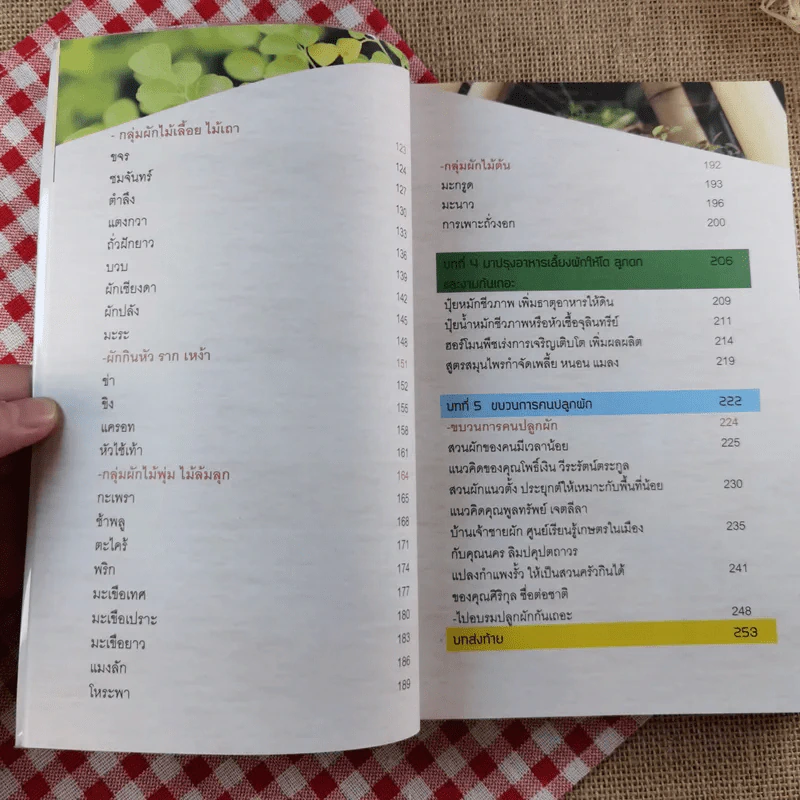 - กลุ่มผักไม้เลื้อย ไม้เถา 123
ขจร 124
ชมจันทร์ 127
ตำลึง 130
แตงกวา 133
ถั่วฝักยาว 136
บวบ 139
ผักเชียงดา 142
ผักปลัง 145
มะระ 148
-ผักกินหัว ราก เหง้า 151
ข่า 152
ขิง 155
แครอท 158
หัวไช้เท้า 161
-กลุ่มผักไม้พุ่ม ไม้ล้มลุก 164
กะเพรา 165
ช้าพลู 168
ตะไคร้ 171
พริก 174
มะเขือเทศ 177
มะเขือเปราะ 180
มะเขือยาว 183
แมงลัก 186
โหระพา 189
-กลุ่มผักไม้ต้น 192
มะกรูด 193
มะนาว 196
การเพาะถั่วงอก 200
บทที่ 4 มาปรุงอาหารเลี้ยงผักให้โต ลูกดก 206
และงามกันเถอะ
ปุ๋ยหมักชีวภาพ เพิ่มธาตุอาหารให้ดิน 209
ปุ๋ยน้ำหมักชีวภาพหรือหัวเชื้อจุลินทรีย์ 211
ฮอร์โมนพืชเร่งการเจริญเติบโต เพิ่มผลผลิต 214
สูตรสมุนไพรกำจัดเพลี้ย หนอน แมลง 219
บทที่ 5 ขบวนการคนปลูกผัก 222
-ขบวนการคนปลูกผัก 224
สวนผักของคนมีเวลาน้อย 225
แนวคิดของคุณโพธิ์เงิน วีระรัตน์ตระกูล
สวนผักแนวตั้ง ประยุกต์ให้เหมาะกับพื้นที่น้อย 230
แนวคิดคุณพูลทรัพย์ เจตลีลา
บ้านเจ้าชายผัก ศูนย์เรียนรู้เกษตรในเมือง 235
กับคุณนคร ลิมปคุปตถาวร
แปลงกำแพงรั้ว ให้เป็นสวนครัวกินได้ 241
ของคุณศิริกุล ซื่อต่อชาติ
-ไปอบรมปลูกผักกันเถอะ 248
บทส่งท้าย 253